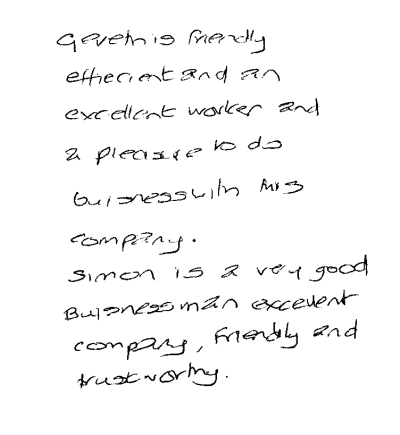 Gareth is friendly
effiecient and an
excellent worker and
a pleasure to do
buisness with his
company.
Simon is a very good
Buisness man excellent
company, friendly and
trustworthy.